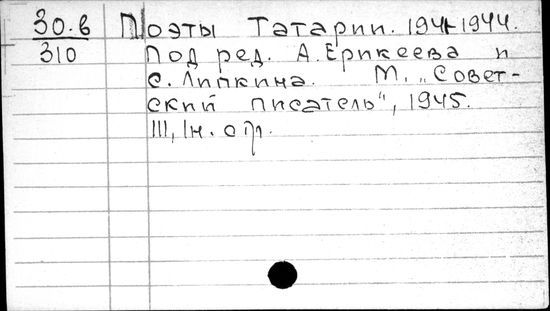 30.6 Поэты Татарии. 1941-1944.
310 Под ред. А. Ерикеева и
С. Липкина. М., „Совет-
ский писатель", 1945.
111, 1н. с пл.